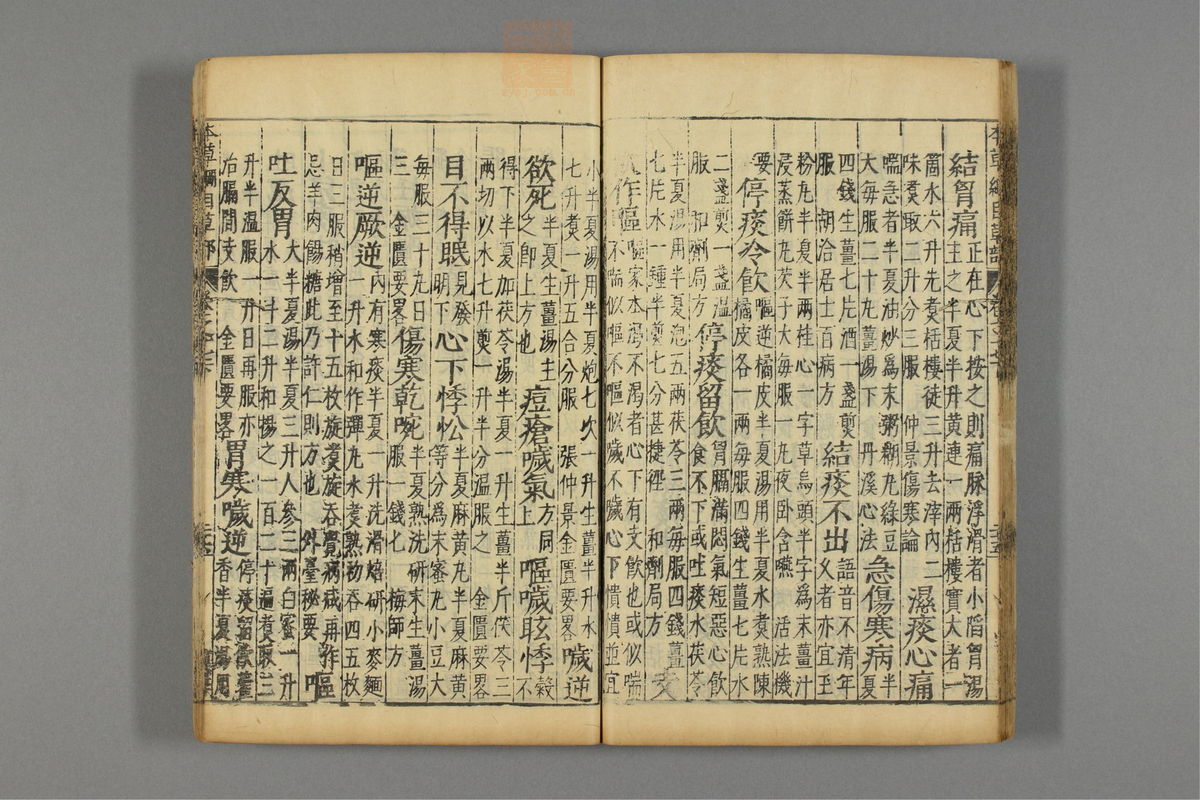 本草綱目草部
結胷痛正在心下按之則痛脉浮滑者小陷胷湯
主之半夏半升黄連一兩栝樓實大者一
箇水六升先煮栝樓徒三升去滓内二
味煮取二升分三服 仲景傷寒論 濕痰心痛
喘急者半夏油炒爲末粥糊丸綠豆
大每服二十丸薑湯下 丹溪心法 急傷寒病半夏
四錢生薑七片酒一盞煎
服 胡洽居士百病方 結痰不出語音不清年
久者亦宜玉
粉丸半夏半兩桂心一字草烏頭半字爲末薑汁
浸蒸餅丸芡子大每服一丸夜卧含嚥 活法機
要 停痰冷飲嘔逆橘皮半夏湯用半夏水煮熟陳
橘皮各一兩每服四錢生薑七片水
二盞煎一盞溫
服 和劑局方 停痰留飲胷膈滿悶氣短惡心飲
食不下或吐痰水茯苓
半夏湯用半夏泡五兩茯苓三兩每服四錢薑
七片水一鍾半煎七分甚捷徑 和劑局方 支
飲作嘔嘔家本渴不渴者心下有支飲也或似喘
不喘似嘔不嘔似噦不噦心下憒憒並宜
小半夏湯用半夏炮七次一升生薑半升水
七升煮一升五合分服 張仲景金匱要畧 噦逆
欲死半夏生薑湯主
之即上方也 痘瘡噦氣方同
上 嘔噦眩悸穀
不
得下半夏加茯苓湯半夏一升生薑半斤茯苓三
兩切以水七升煎一升半分溫服之 金匱要畧
目不得眠見發
明下 心下悸忪半夏麻黄
等分爲末蜜丸小豆大
每服三十丸日
三 金匱要畧 傷寒乾啘半夏熟洗研末生薑湯
服一錢七 梅師方
嘔逆厥逆內有寒痰半夏一升洗滑焙研小麥麵
一升水和作彈丸水煮熟初吞四五枚
日三服稍增至十五枚旋煮旋吞覺病減再作
忌羊肉餳糖此乃許仁則方也 外臺秘要 嘔
吐反胃大半夏湯半夏三升人參三兩白蜜一升
水一斗二升和揚之一百二十遍煮取三
升半溫服一升日再服亦
治膈間支飲 金匱要畧 胃寒噦逆停痰留飲藿
香半夏湯用
本草綱目草部